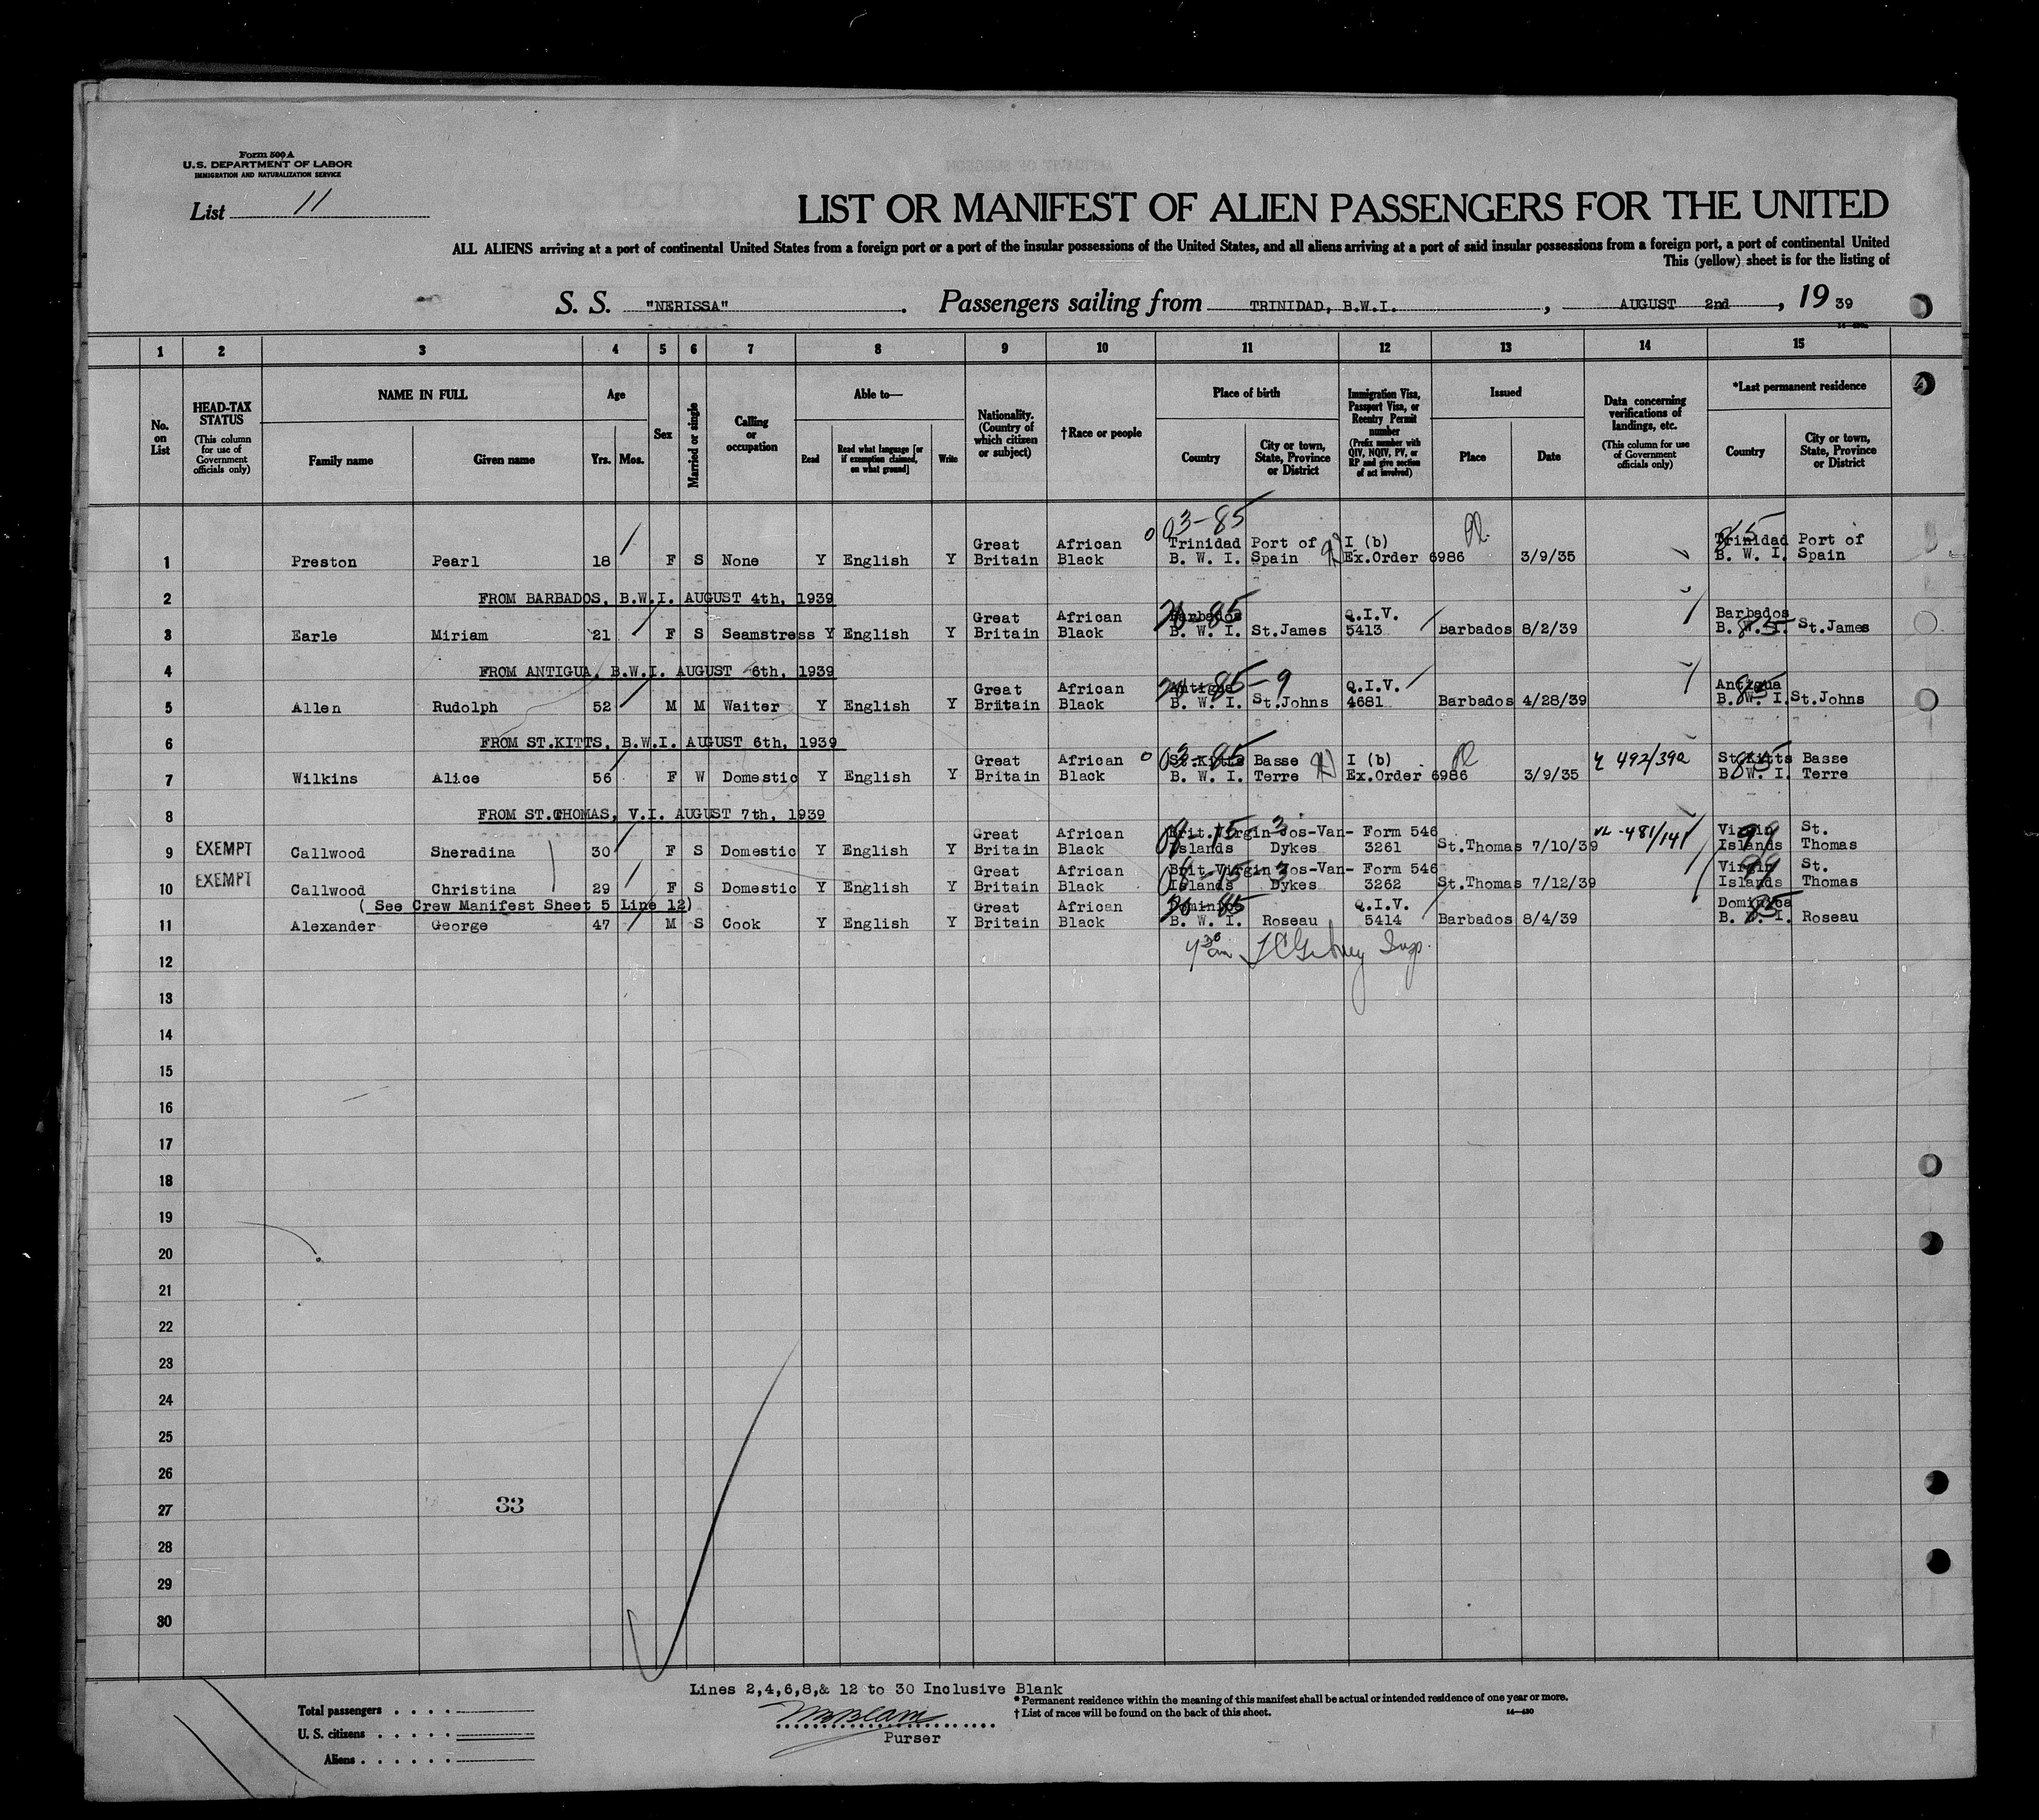 Form 500 A
U.S. DEPARTMENT OF LABOR
IMMIGRATION AND NATURALIZATION SERVICE
List 11
LIST OR MANIFEST OF ALIEN PASSENGERS FOR THE UNITED
ALL ALIENS arriving at a port of continental United States from a foreign port or a port of the insular possessions of the United States, and all aliens arriving at a port of said insular possessions from a foreign port, a port of continental United
This (yellow) sheet is for the listing of
S. S. "NERISSA". Passengers sailing from TRINIDAD, B.W.I., AUGUST 2nd, 19 39
1 2 3 4 5 6 7 8 9 10 11 12 13 14 15
No. on List
HEAD-TAX STATUS (This column for use of Government officials only)
NAME IN FULL
Family name Given name
Age
Yrs. Mos.
Sex
Married or single
Calling or occupation
Able to—
Read Read what language [or if exemption claimed, on what ground] Write
Nationality. (Country of which citizen or subject)
†Race or people
Place of birth
Country City or town, State, Province or District
Immigration Visa, Passport Visa, or Reentry Permit number (Prefix number with QIV, NQIV, PV, or RP and give section of act involved)
Issued
Place Date
Data concerning verifications of landings, etc. (This column for use of Government officials only)
*Last permanent residence
Country City or town, State, Province or District
03-85
1 Preston Pearl 18 F S None Y English Y Great Britain African Black Trinidad B. W. I. Port of Spain I (b) Ex.Order 6986 3/9/35 Trinidad B. W. I. Port of Spain
85
2 FROM BARBADOS, B.W.I. AUGUST 4th, 1939
3 Earle Miriam 21 F S Seamstress Y English Y Great Britain African Black Barbados B. W. I. St.James Q.I.V. 5413 Barbados 8/2/39 Barbados B. W. I. St.James
4 FROM ANTIGUA, B.W.I. AUGUST 6th, 1939
5 Allen Rudolph 52 M M Waiter Y English Y Great Britain African Black Antigua B. W. I. St.Johns Q.I.V. 4681 Barbados 4/28/39 Antigua B. W. I. St.Johns
6 FROM ST.KITTS, B.W.I. AUGUST 6th, 1939
7 Wilkins Alice 56 F W Domestic Y English Y Great Britain African Black St.Kitts B. W. I. Basse Terre I (b) Ex.Order 6986 3/9/35 492/392 St.Kitts B. W. I. Basse Terre
8 FROM ST.THOMAS, V.I. AUGUST 7th, 1939
9 EXEMPT Callwood Sheradina 30 F S Domestic Y English Y Great Britain African Black Brit.Virgin Islands Jos-Van-Dykes Form 546 3261 St.Thomas 7/10/39 VL-481/141 Virgin Islands St. Thomas
10 EXEMPT Callwood Christina 29 F S Domestic Y English Y Great Britain African Black Brit.Virgin Islands Jos-Van-Dykes Form 546 3262 St.Thomas 7/12/39 Virgin Islands St. Thomas
(See Crew Manifest Sheet 5 Line 12)
11 Alexander George 47 M S Cook Y English Y Great Britain African Black Dominica B. W. I. Roseau Q.I.V. 5414 Barbados 8/4/39 Dominica B. W. I. Roseau
12
13
14
15
16
17
18
19
20
21
22
23
24
25
26
27 33
28
29
30
Lines 2,4,6,8,& 12 to 30 Inclusive Blank
Purser
Total passengers
U. S. citizens
Aliens
* Permanent residence within the meaning of this manifest shall be actual or intended residence of one year or more.
† List of races will be found on the back of this sheet.
14—430